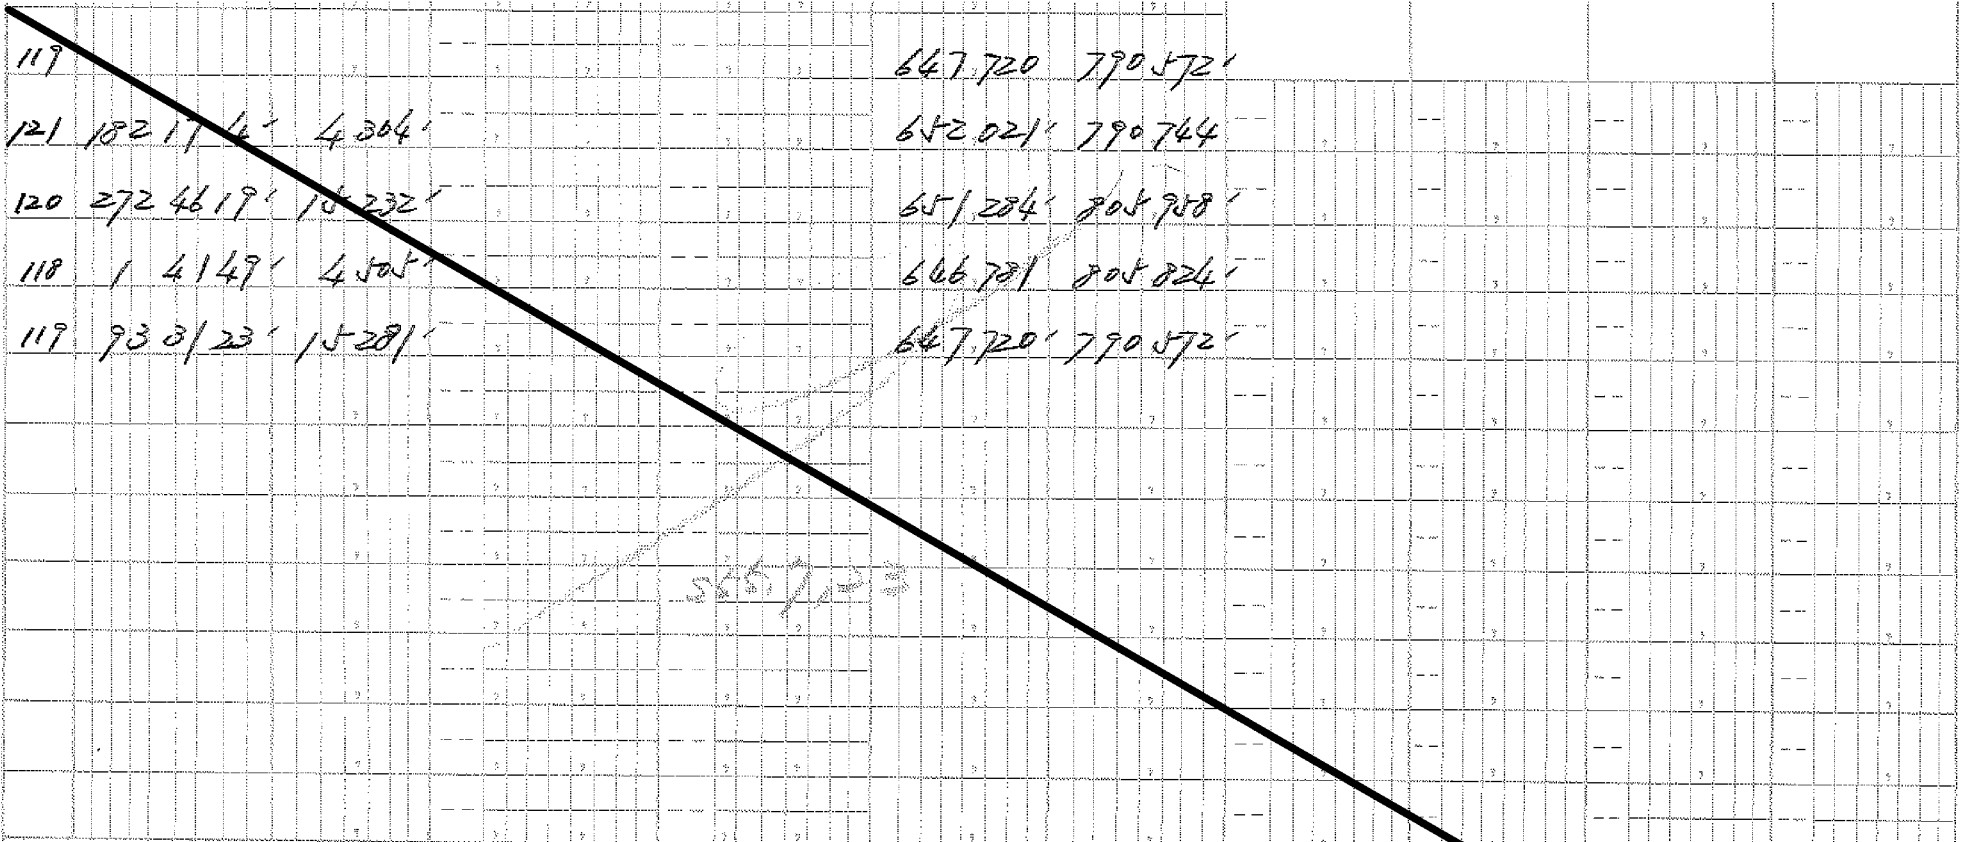 119 647.720 790.572
121 182 17 4 4.304 652.021 790.744
120 272 46 19 15.232 651.284 805.958
118 1 41 49 4.505 646.781 805.824
119 93 31 23 15.281 647.720 790.572